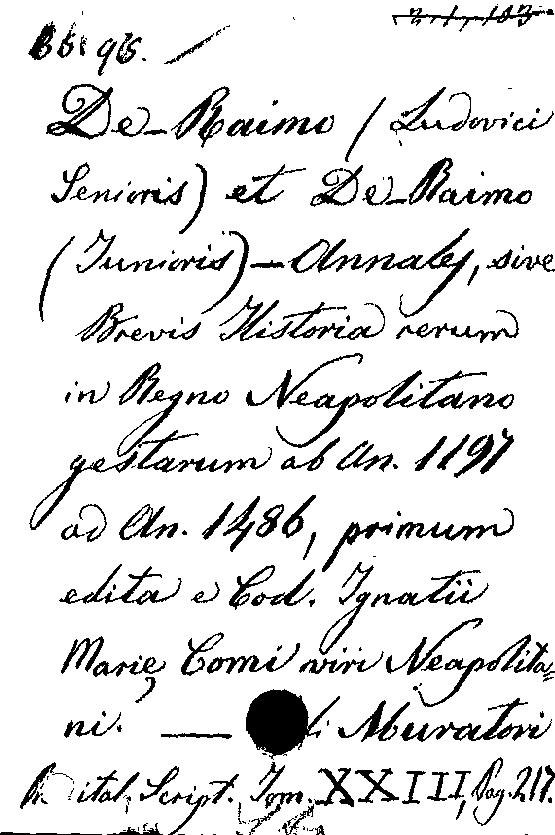 2-1, 103
B b. 96.
De-Raimo (Ludovici
Senioris) et De-Raimo
(Junioris) — Annales, sive
Brevis Historia rerum
in Regno Neapolitano
gestarum ab An. 1197
ad An. 1486, primum
edita e Cod. Ignatii
Marie Comi viri Neapolita=
ni. — Muratori
R. ital. Script. Tom. XXIII, Pag. 217.